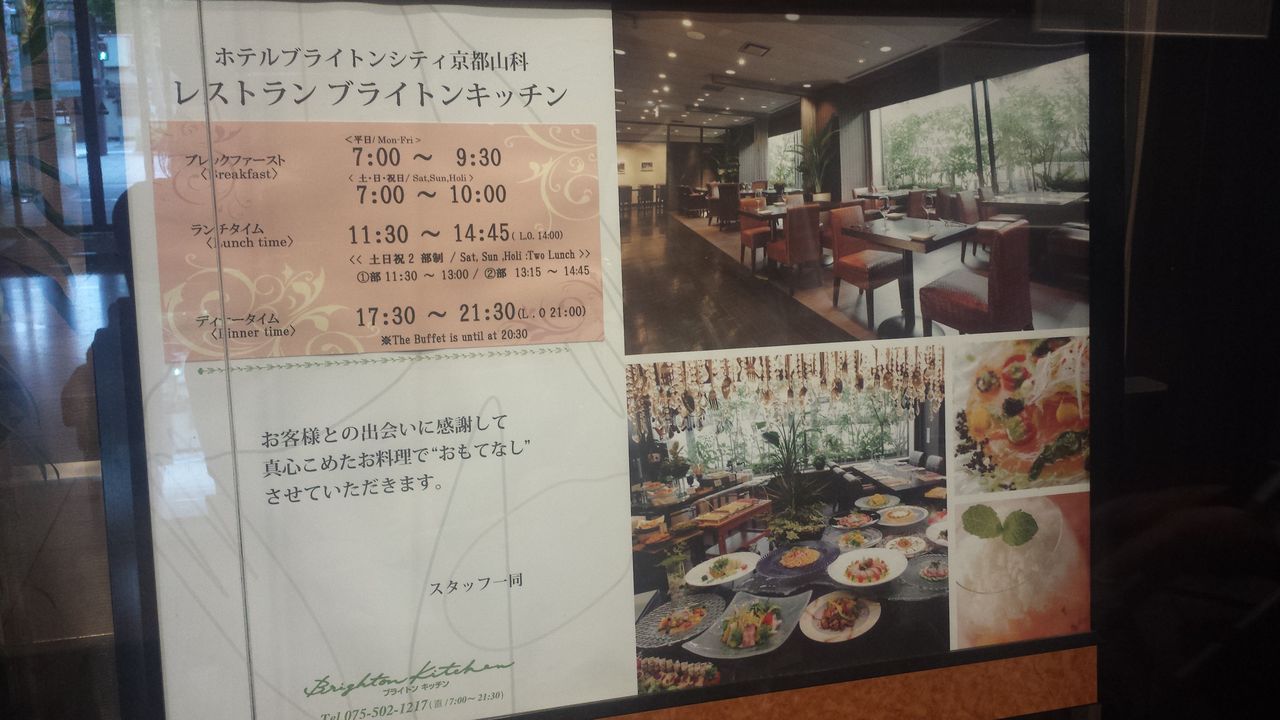 ホテルブライトンシティ京都山科
レストラン ブライトンキッチン
ブレックファースト
〈Breakfast〉
＜平日/ Mon-Fri＞
7:00 ～ 9:30
＜土・日・祝日/ Sat,Sun,Holi＞
7:00 ～ 10:00
ランチタイム
〈Lunch time〉
11:30 ～ 14:45( L.O. 14:00)
<< 土日祝2 部制 / Sat, Sun ,Holi :Two Lunch >>
①部 11:30 ～ 13:00 / ②部 13:15 ～ 14:45
ディナータイム
〈Dinner time〉
17:30 ～ 21:30(L . O 21:00)
※The Buffet is until at 20:30
お客様との出会いに感謝して
真心こめたお料理で“おもてなし”
させていただきます。
スタッフ一同
Brighton Kitchen
ブライトン キッチン
Tel 075-502-1217 (直 / 7:00～21:30)